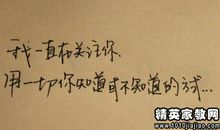 我一直在关注你
用一切你知道或不知道的方式…
精英家教网
www.1010jiajiao.com